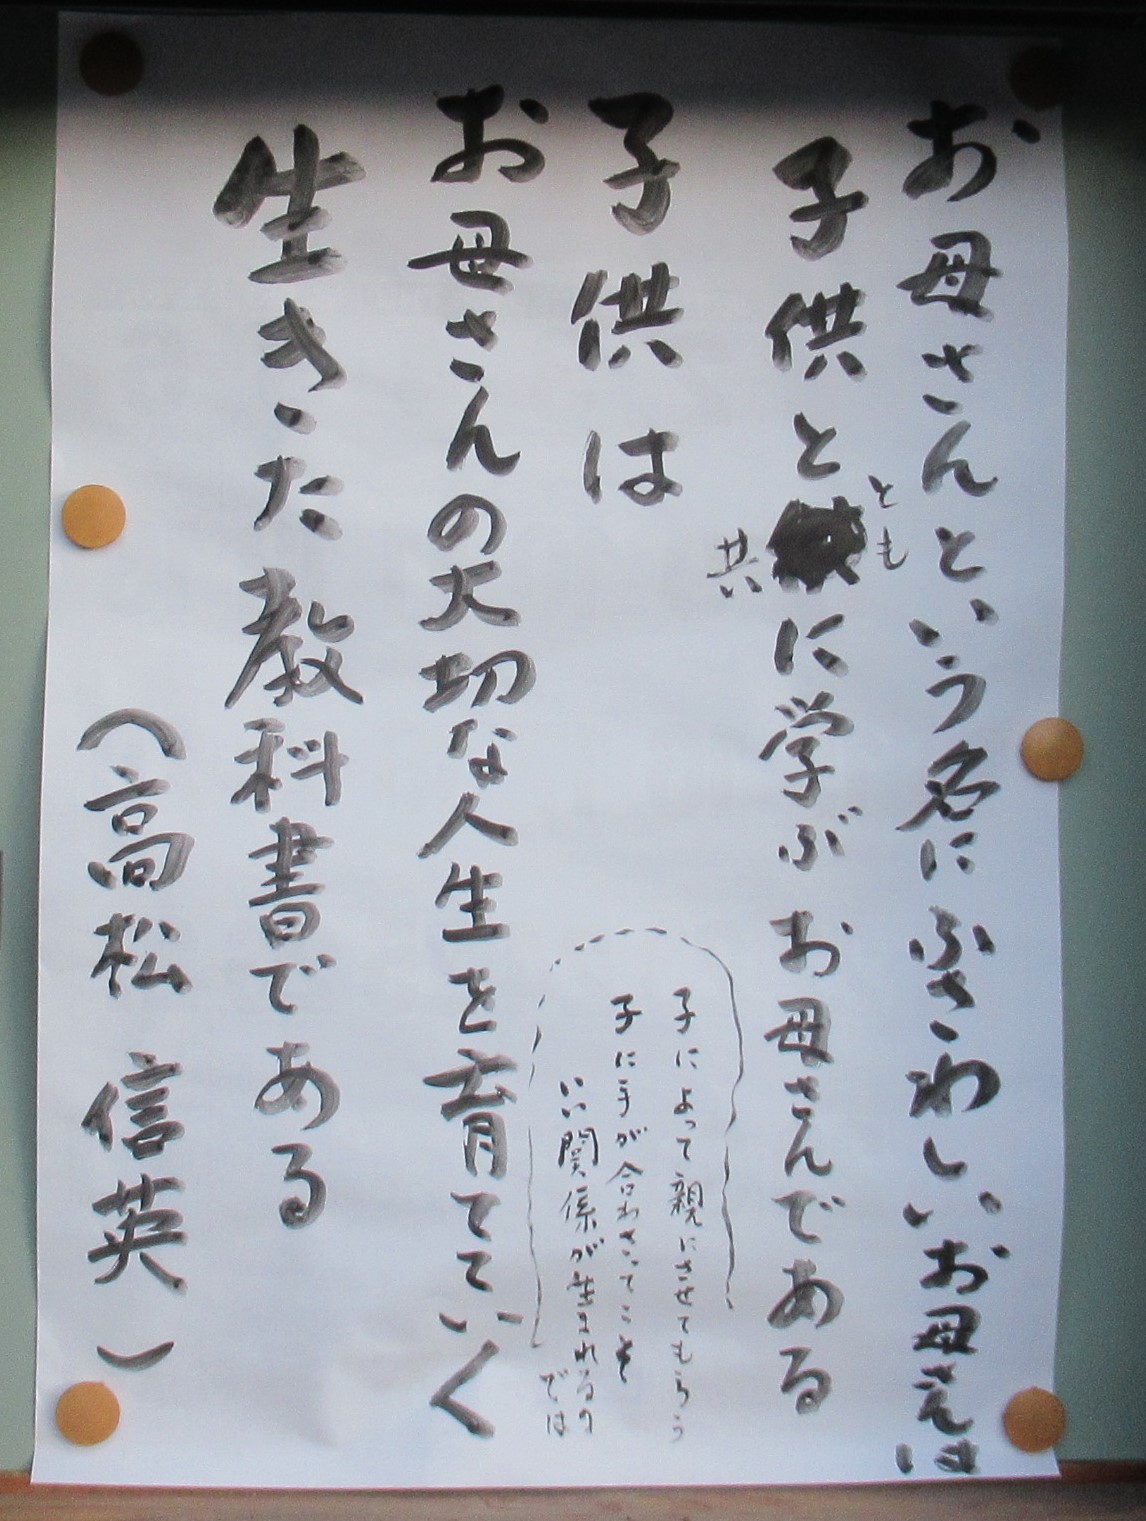 お母さんという名にふさわしいお母さんは
子供と共にとも学ぶお母さんである
子供は
子によって親にさせてもらう
子に手が合わさってこそ
いい関係が生まれるの
では
お母さんの大切な人生を育てていく
生きた教科書である
（高松 信英）